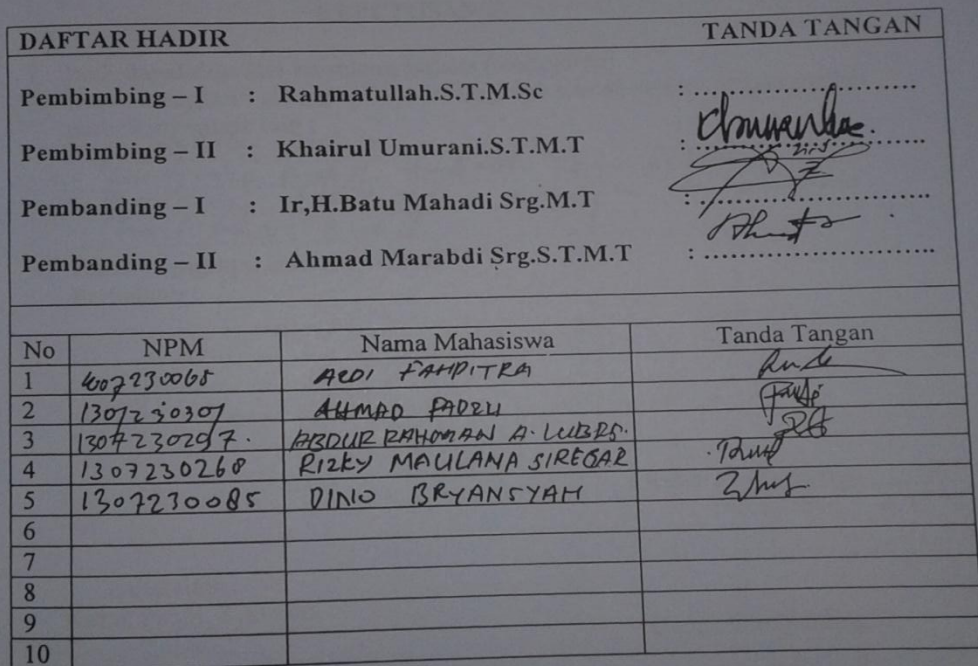 DAFTAR HADIR TANDA TANGAN
Pembimbing – I : Rahmatullah.S.T.M.Sc : ........................
Pembimbing – II : Khairul Umurani.S.T.M.T : ........................
Pembanding – I : Ir,H.Batu Mahadi Srg.M.T : ........................
Pembanding – II : Ahmad Marabdi Srg.S.T.M.T : ........................
No NPM Nama Mahasiswa Tanda Tangan
1 FAHPITRA
2 1307230307 AHMAD FADELI
3 1307230297. ABDUR RAHMAN A. LUBRS.
4 1307230268 RIZKY MAULANA SIREGAR
5 1307230085 DINO BRYANSYAH
6
7
8
9
10